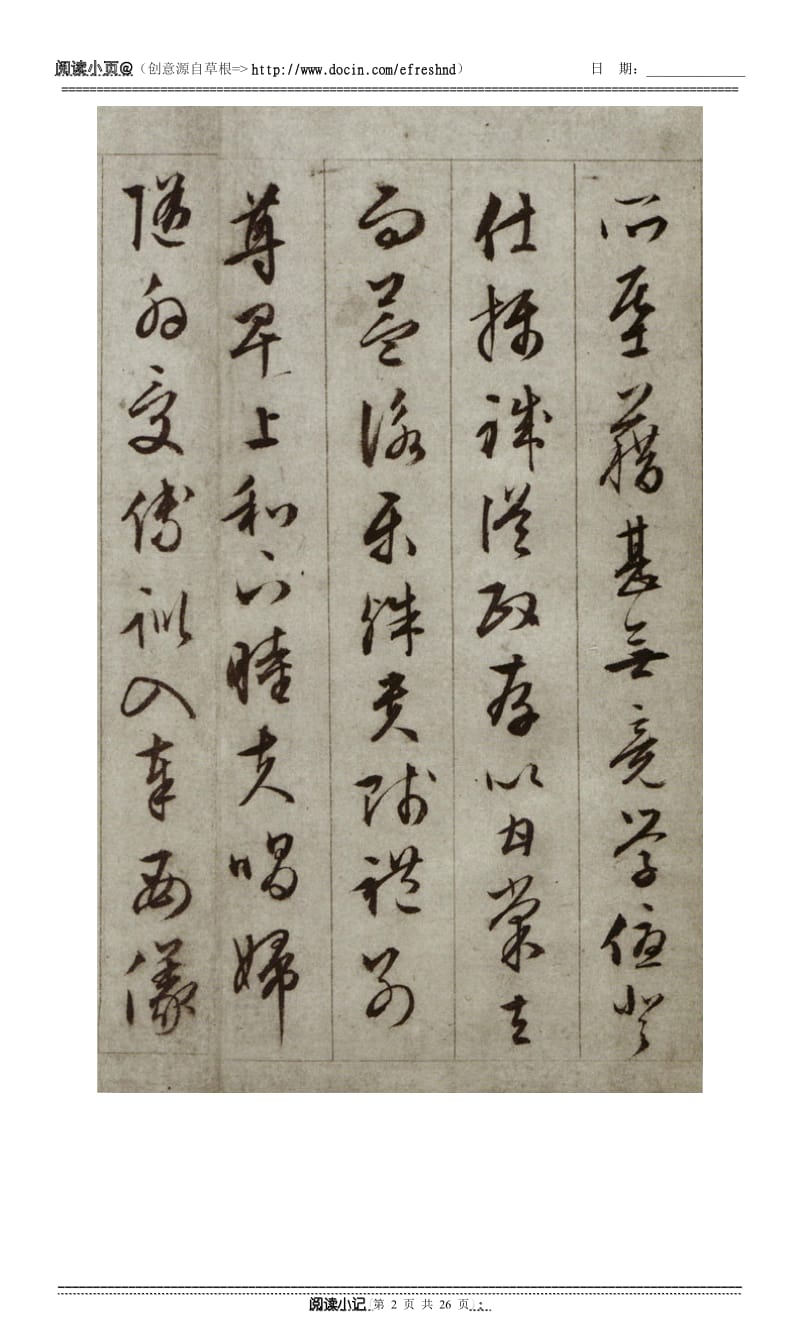 阅读小页@（创意源自草根=> http://www.docin.com/efreshnd） 日 期：
所基藉甚無竟學優登
仕攝職從政存以甘棠去
而益詠樂殊貴賤禮別
尊卑上和下睦夫唱婦
隨外受傅訓入奉母儀
阅读小记 [第 2 页 共 26 页]：